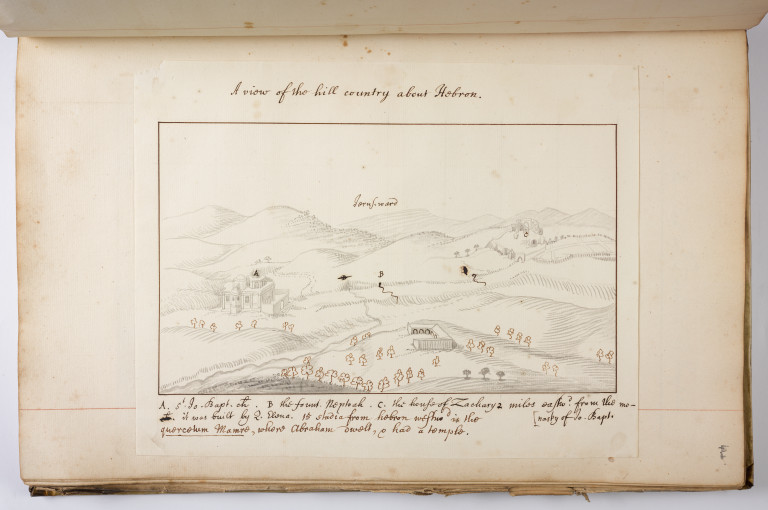 A view of the hill country about Hebron.
Jerusward
A
B
C
A. st. Jo. Bapt. ch. B the fount. Neptoah. C. the house of Zachary 2 miles eastwd. from the mo-
it was built by Q. Elena. 15 stadia from hebron westwd is the [nasty of Jo. Bapt.
quercetum Mamre, where Abraham dwelt, & had a temple.